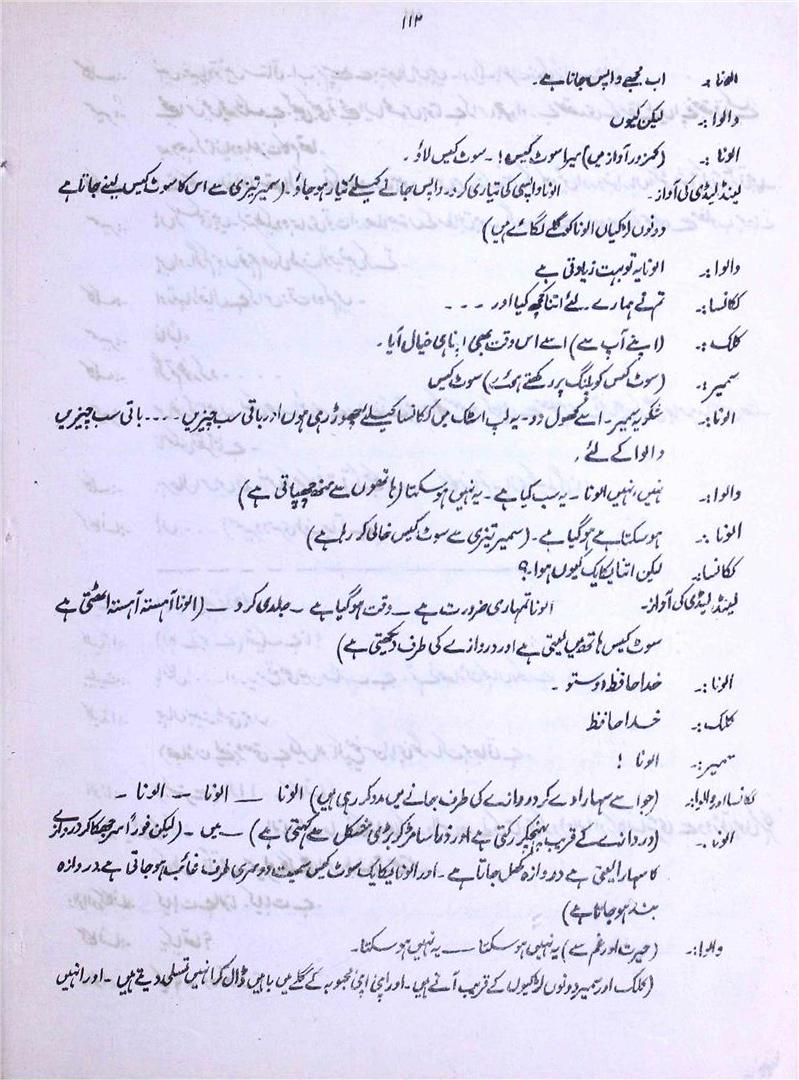 ۱۱۲
الونا :۔ اب مجھے واپس جانا ہے۔
والوا :۔ لیکن کیوں
الونا :۔ (کمزور آواز میں) میرا سوٹ کیس! ۔ سوٹ کیس لاؤ ۔
لینڈ لیڈی کی آواز۔ الونا واپسی کی تیاری کرو۔ واپس جانے کیلئے تیار ہو جاؤ۔ (سمیر تیزی سے اس کا سوٹ کیس لینے جاتا ہے
دونوں لڑکیاں الونا کو گلے لگائے ہیں)
والوا :۔ الونا یہ تو بہت زیادتی ہے
ککانسا :۔ تم نے ہمارے لئے اتنا کچھ کیا اور ۔ ۔ ۔
کلک :۔ (اپنے آپ سے) اسے اس وقت بھی اپنا ہی خیال آیا۔
سمیر :۔ (سوٹ کیس کو پلنگ پر رکھتے ہوئے) سوٹ کیس
الونا :۔ شکریہ سمیر۔ اسے کھول دو۔ یہ لپ اسٹک میں ککانسا کیلئے چھوڑ رہی ہوں اور باقی سب چیزیں ۔ ۔ ۔ ۔ باقی سب چیزیں
والوا کے لئے ۔
والوا :۔ نہیں، نہیں الونا ۔ یہ سب کیا ہے ۔ یہ نہیں ہو سکتا (ہاتھوں سے منھ چھپاتی ہے)
الونا :۔ ہو سکتا ہے ہو گیا ہے ۔ (سمیر تیزی سے سوٹ کیس خالی کر رہا ہے)
ککانسا :۔ لیکن اتنا یکایک کیوں ہوا۔؟
لینڈ لیڈی کی آواز۔ الونا تمہاری ضرورت ہے ۔ وقت ہو گیا ہے ۔ جلدی کرو ۔ (الونا آہستہ آہستہ اٹھتی ہے
سوٹ کیس ہاتھ میں لیتی ہے اور دروازے کی طرف دیکھتی ہے)
الونا :۔ خدا حافظ دوستو ۔
کلک :۔ خدا حافظ
سمیر :۔ الونا !
ککانسا اور والوا:۔ (جو اسے سہارا دے کر دروازے کی طرف جانے میں مدد کر رہی ہیں) الونا ۔ الونا ۔ الونا ۔
الونا :۔ (دروازے کے قریب پہنچ کر رکتی ہے اور ذرا سا مڑ کر بڑی مشکل سے کہتی ہے) ۔ میں ۔ (لیکن فوراً سر جھکا کر دروازے
کا سہارا لیتی ہے دروازہ کھل جاتا ہے ۔ اور الونا یکایک سوٹ کیس سمیت دوسری طرف غائب ہو جاتی ہے۔ دروازہ
بند ہو جاتا ہے)
والوا :۔ (حیرت اور غم سے) یہ نہیں ہو سکتا ۔ یہ نہیں ہو سکتا۔
(کلک اور سمیر دونوں لڑکیوں کے قریب آتے ہیں ۔ اور اپنی اپنی محبوبہ کے گلے میں باہیں ڈال کر انہیں تسلی دیتے ہیں ۔ اور انہیں